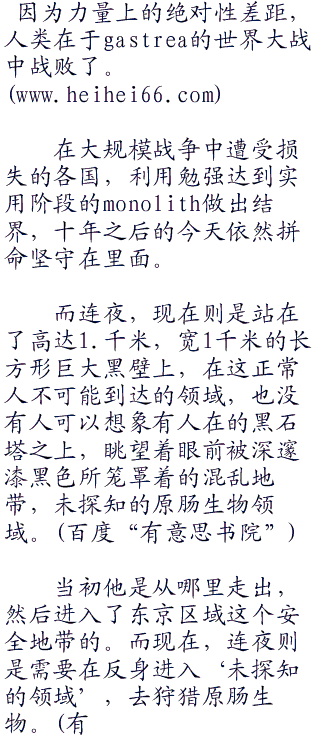 因为力量上的绝对性差距，
人类在于gastrea的世界大战
中战败了。
(www.heihei66.com)
在大规模战争中遭受损
失的各国，利用勉强达到实
用阶段的monolith做出结
界，十年之后的今天依然拼
命坚守在里面。
而连夜，现在则是站在
了高达1.千米，宽1千米的长
方形巨大黑壁上，在这正常
人不可能到达的领域，也没
有人可以想象有人在的黑石
塔之上，眺望着眼前被深邃
漆黑色所笼罩着的混乱地
带，未探知的原肠生物领
域。(百度“有意思书院”)
当初他是从哪里走出，
然后进入了东京区域这个安
全地带的。而现在，连夜则
是需要在反身进入‘未探知
的领域’，去狩猎原肠生
物。(有